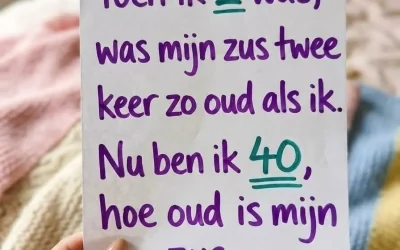 Toen ik was,
was mijn zus twee
keer zo oud als ik.
Nu ben ik 40,
hoe oud is mijn